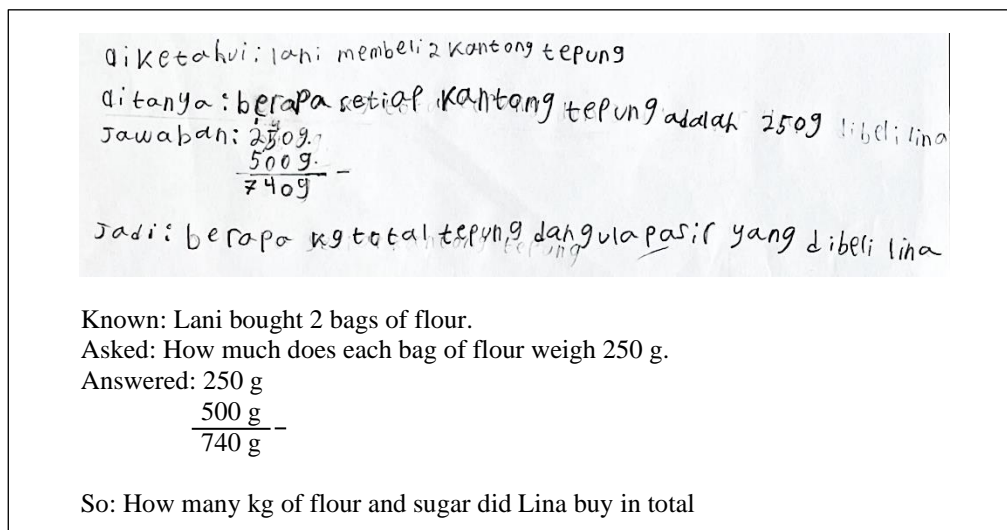 diketahui: lani membeli 2 kantong tepung
ditanya: berapa setiap kantang tepung adalah 250g libeli lina
Jawaban: 250g.
500g. -
740g
Jadi: berapa kg total tepung dan gula pasir yang dibeli lina
Known: Lani bought 2 bags of flour.
Asked: How much does each bag of flour weigh 250 g.
Answered: 250 g
500 g -
740 g
So: How many kg of flour and sugar did Lina buy in total